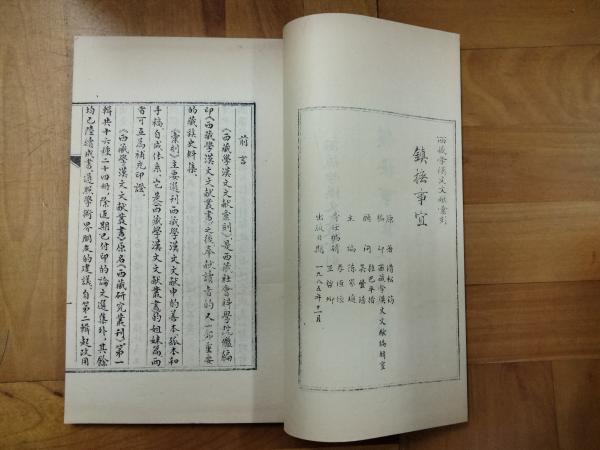 西藏學漢文文獻彙刻
鎮撫事宜
原著 清 松筠
編印 西藏學漢文文獻編輯室
顧問 拉巴平措
吳豐培
主編 陳家璡
責任編輯
出版日期 一九八五年十一月
前言
《西藏學漢文文獻彙刻》是西藏社會科學院繼編
印《西藏學漢文文獻叢書》之後奉獻讀者的又一部重要
的藏族史料集。
《彙刻》主要選刊西藏學漢文文獻中的善本孤本和
手稿自成体系，它與《西藏學漢文文獻叢書》的姐妹篇兩
者可互爲補充印證。
《西藏學漢文文獻叢書》原名《西藏研究叢刊》第一
輯共十六種二十四冊，除近期已付印的論文選集外，其餘
均已陸續成書，遵照學術界朋友的建議，自第二輯起改用
一